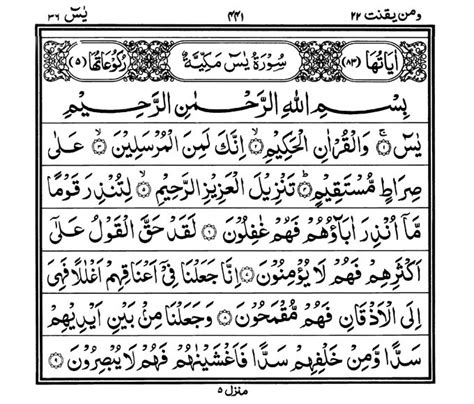 ومن يقنت ٢٢ ٤٤١ يٰسٓ ٣٦
اٰيَاتُهَا (٨٣) سُوْرَةُ يٰسٓ مَكِّيَّةٌ رُكُوْعَاتُهَا (٥)
بِسْمِ اللهِ الرَّحْمٰنِ الرَّحِيْمِ
يٰسٓ ۚ﴿١﴾ وَالْقُرْاٰنِ الْحَكِيْمِ ۙ﴿٢﴾ اِنَّكَ لَمِنَ الْمُرْسَلِيْنَ ۙ﴿٣﴾ عَلٰى
صِرَاطٍ مُّسْتَقِيْمٍ ؕ﴿٤﴾ تَنْزِيْلَ الْعَزِيْزِ الرَّحِيْمِ ۙ﴿٥﴾ لِتُنْذِرَ قَوْمًا
مَّاۤ اُنْذِرَ اٰبَآؤُهُمْ فَهُمْ غٰفِلُوْنَ ﴿٦﴾ لَقَدْ حَقَّ الْقَوْلُ عَلٰۤى
اَكْثَرِهِمْ فَهُمْ لَا يُؤْمِنُوْنَ ﴿٧﴾ اِنَّا جَعَلْنَا فِيْۤ اَعْنَاقِهِمْ اَغْلٰلًا فَهِيَ
اِلَى الْاَذْقَانِ فَهُمْ مُّقْمَحُوْنَ ﴿٨﴾ وَجَعَلْنَا مِنْۢ بَيْنِ اَيْدِيْهِمْ
سَدًّا وَّمِنْ خَلْفِهِمْ سَدًّا فَاَغْشَيْنٰهُمْ فَهُمْ لَا يُبْصِرُوْنَ ﴿٩﴾
منزل ٥